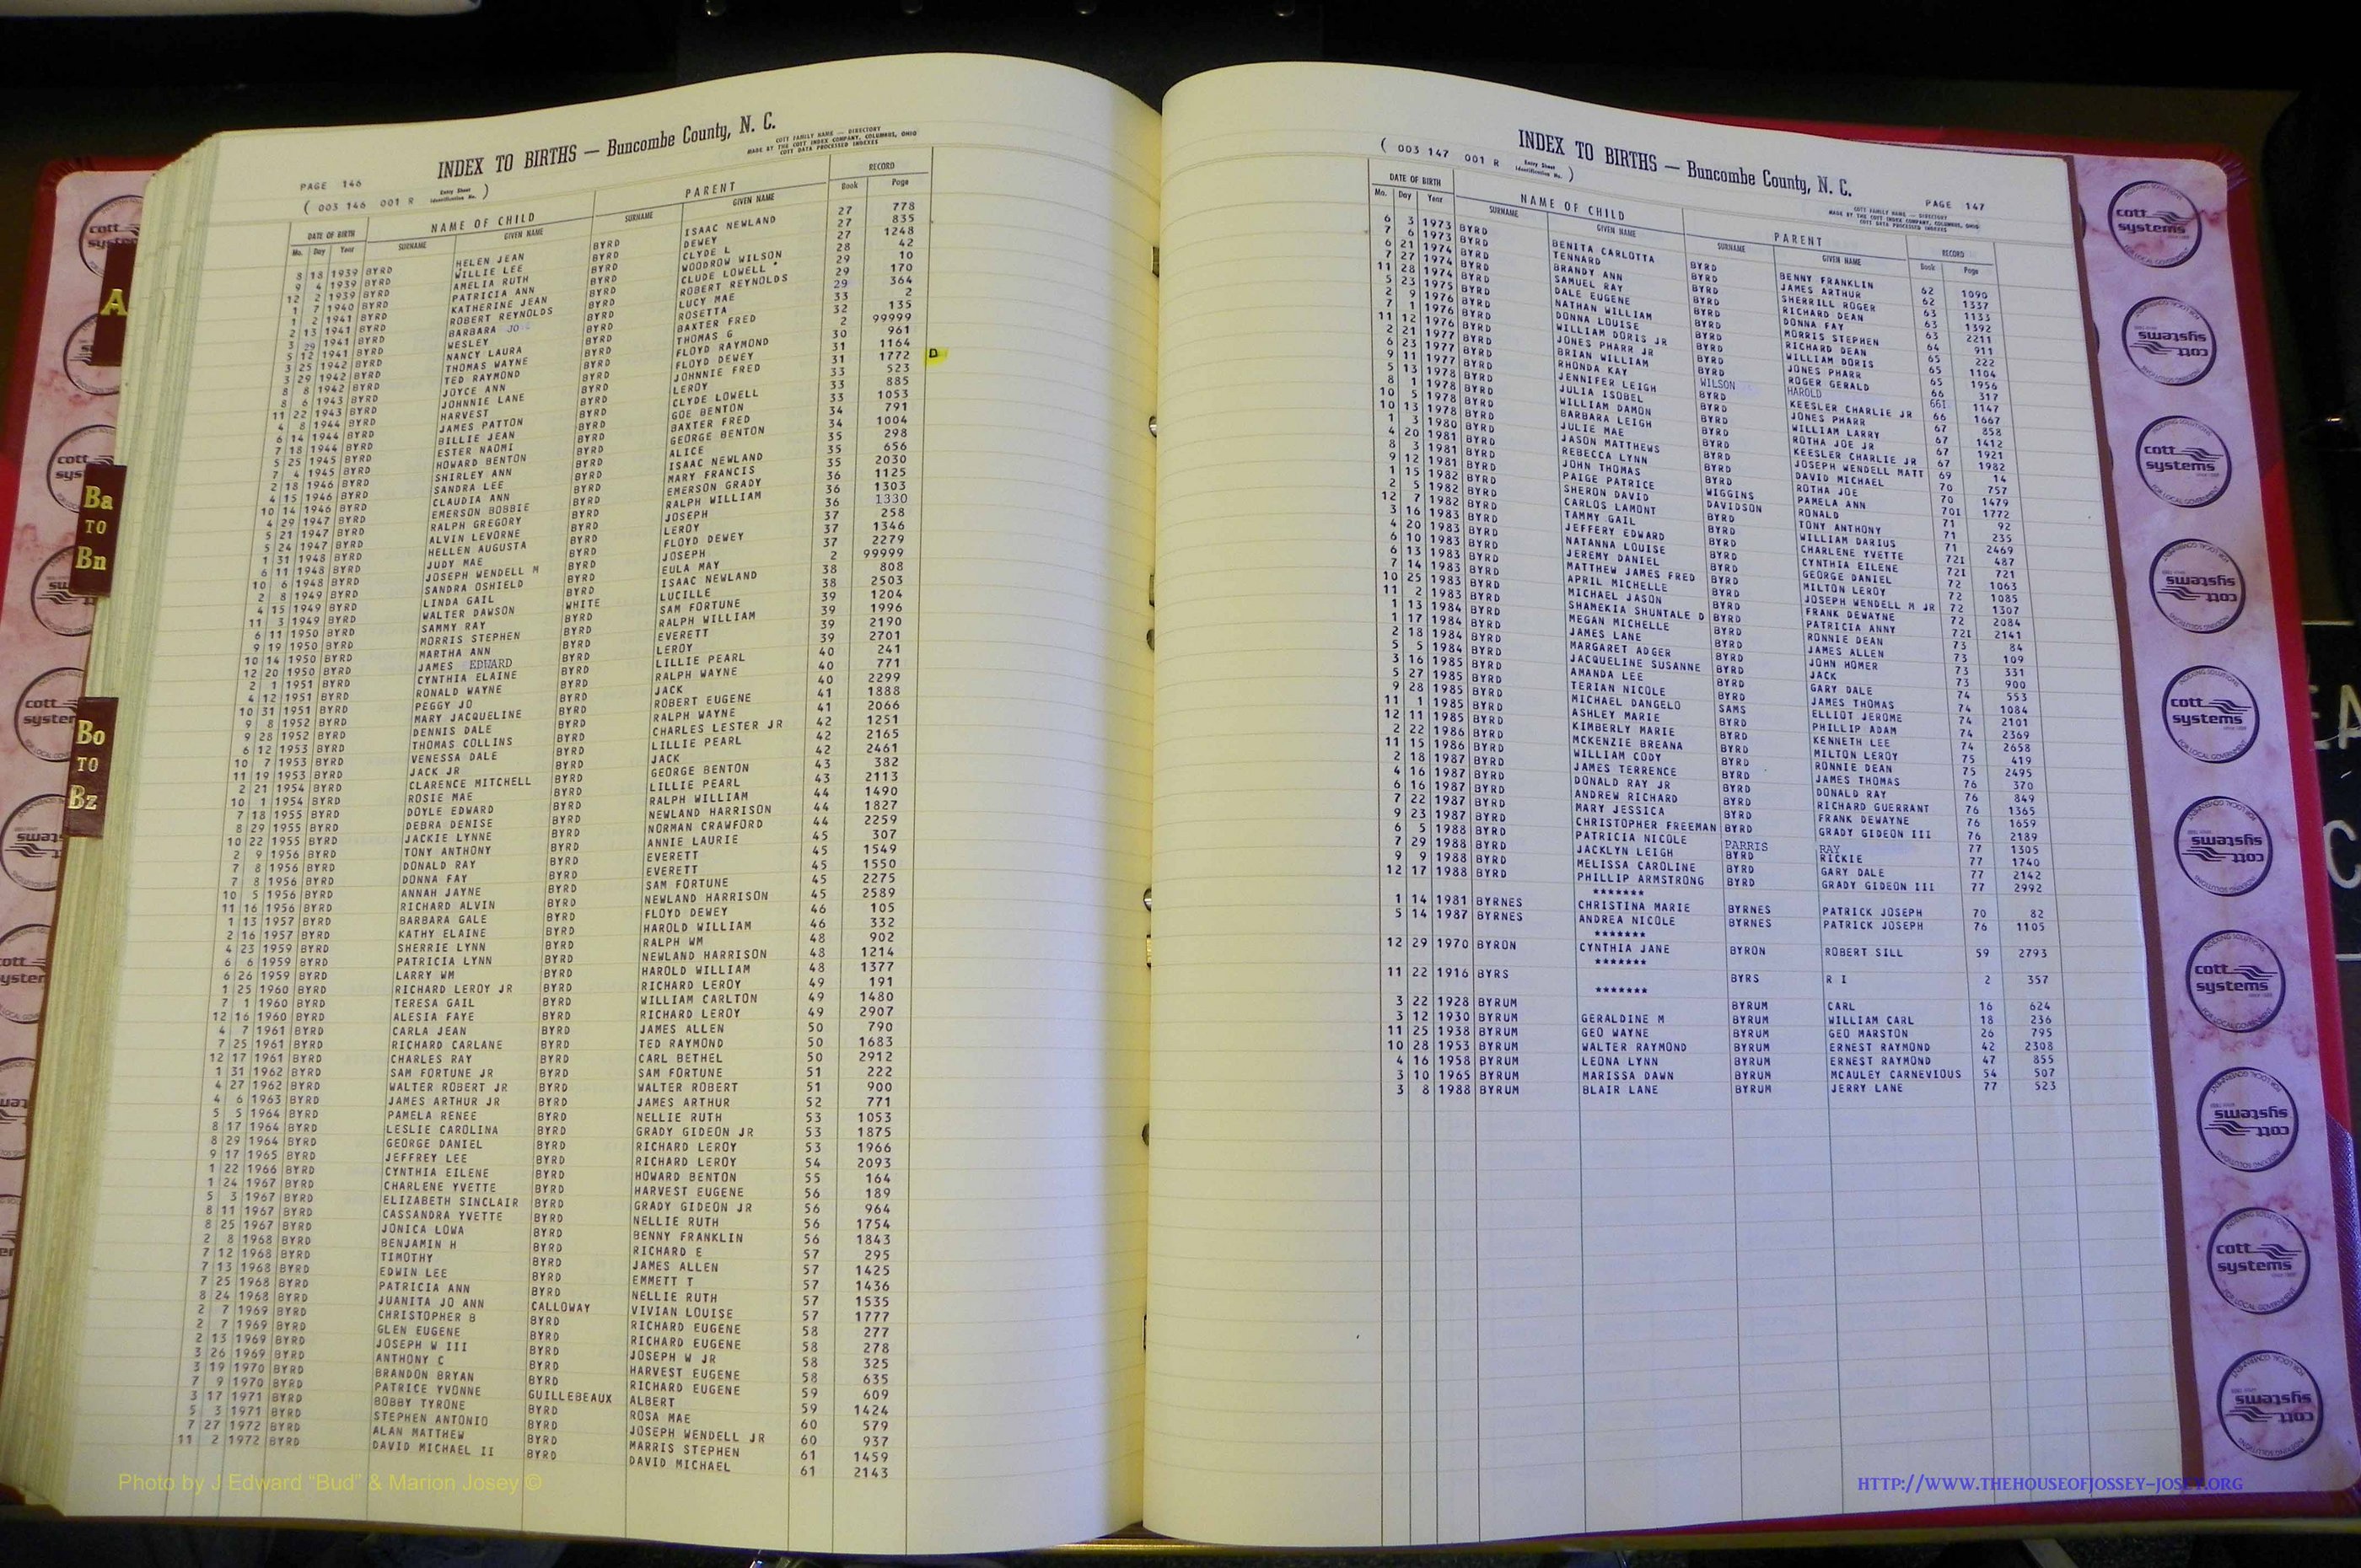 INDEX TO BIRTHS — Buncombe County, N. C.
COTT FAMILY NAME — DIRECTORY
MADE BY THE COTT INDEX COMPANY, COLUMBUS, OHIO
COTT DATA PROCESSED INDEXES
PAGE 146
( 003 146 001 R Entry Sheet Identification No. )
DATE OF BIRTH NAME OF CHILD PARENT RECORD
Mo. Day Year SURNAME GIVEN NAME SURNAME GIVEN NAME Book Page
8 18 1939 BYRD HELEN JEAN BYRD ISAAC NEWLAND 27 778
9 4 1939 BYRD WILLIE LEE BYRD DEWEY 27 835
12 2 1939 BYRD AMELIA RUTH BYRD CLYDE L 27 1248
1 7 1940 BYRD PATRICIA ANN BYRD WOODROW WILSON 28 42
1 2 1941 BYRD KATHERINE JEAN BYRD CLUDE LOWELL 29 10
2 13 1941 BYRD ROBERT REYNOLDS BYRD ROBERT REYNOLDS 29 170
3 29 1941 BYRD BARBARA JO BYRD LUCY MAE 29 364
5 12 1941 BYRD WESLEY BYRD ROSETTA 33 2
3 25 1942 BYRD NANCY LAURA BYRD BAXTER FRED 32 135
3 29 1942 BYRD THOMAS WAYNE BYRD THOMAS G 2 99999
8 8 1942 BYRD TED RAYMOND BYRD FLOYD RAYMOND 30 961
8 6 1943 BYRD JOYCE ANN BYRD FLOYD DEWEY 31 1164
11 22 1943 BYRD JOHNNIE LANE BYRD JOHNNIE FRED 31 1772 D
4 8 1944 BYRD HARVEST BYRD LEROY 33 523
6 14 1944 BYRD JAMES PATTON BYRD CLYDE LOWELL 33 885
7 18 1944 BYRD BILLIE JEAN BYRD GOE BENTON 33 1053
5 25 1945 BYRD ESTER NAOMI BYRD BAXTER FRED 34 791
7 4 1945 BYRD HOWARD BENTON BYRD GEORGE BENTON 34 1004
2 18 1946 BYRD SHIRLEY ANN BYRD ALICE 35 298
4 15 1946 BYRD SANDRA LEE BYRD ISAAC NEWLAND 35 656
10 14 1946 BYRD CLAUDIA ANN BYRD MARY FRANCIS 35 2030
4 29 1947 BYRD EMERSON BOBBIE BYRD EMERSON GRADY 36 1125
5 21 1947 BYRD RALPH GREGORY BYRD RALPH WILLIAM 36 1303
5 24 1947 BYRD ALVIN LEVORNE BYRD JOSEPH 36 1330
1 31 1948 BYRD HELLEN AUGUSTA BYRD LEROY 37 258
6 11 1948 BYRD JUDY MAE BYRD FLOYD DEWEY 37 1346
10 6 1948 BYRD JOSEPH WENDELL M BYRD JOSEPH 37 2279
2 8 1949 BYRD SANDRA OSHIELD BYRD EULA MAY 2 99999
4 15 1949 BYRD LINDA GAIL BYRD ISAAC NEWLAND 38 808
11 3 1949 BYRD WALTER DAWSON WHITE LUCILLE 38 2503
6 11 1950 BYRD SAMMY RAY BYRD SAM FORTUNE 39 1204
9 19 1950 BYRD MORRIS STEPHEN BYRD RALPH WILLIAM 39 1996
10 14 1950 BYRD MARTHA ANN BYRD EVERETT 39 2190
12 20 1950 BYRD JAMES EDWARD BYRD LEROY 39 2701
2 1 1951 BYRD CYNTHIA ELAINE BYRD LILLIE PEARL 40 241
4 12 1951 BYRD RONALD WAYNE BYRD RALPH WAYNE 40 771
10 31 1951 BYRD PEGGY JO BYRD JACK 40 2299
9 8 1952 BYRD MARY JACQUELINE BYRD ROBERT EUGENE 41 1888
9 28 1952 BYRD DENNIS DALE BYRD RALPH WAYNE 41 2066
6 12 1953 BYRD THOMAS COLLINS BYRD CHARLES LESTER JR 42 1251
10 7 1953 BYRD VENESSA DALE BYRD LILLIE PEARL 42 2165
11 19 1953 BYRD JACK JR BYRD JACK 42 2461
2 21 1954 BYRD CLARENCE MITCHELL BYRD GEORGE BENTON 43 382
10 1 1954 BYRD ROSIE MAE BYRD LILLIE PEARL 43 2113
7 18 1955 BYRD DOYLE EDWARD BYRD RALPH WILLIAM 44 1490
8 29 1955 BYRD DEBRA DENISE BYRD NEWLAND HARRISON 44 1827
10 22 1955 BYRD JACKIE LYNNE BYRD NORMAN CRAWFORD 44 2259
2 9 1956 BYRD TONY ANTHONY BYRD ANNIE LAURIE 45 307
7 8 1956 BYRD DONALD RAY BYRD EVERETT 45 1549
7 8 1956 BYRD DONNA FAY BYRD EVERETT 45 1550
10 5 1956 BYRD ANNAH JAYNE BYRD SAM FORTUNE 45 2275
11 16 1956 BYRD RICHARD ALVIN BYRD NEWLAND HARRISON 45 2589
1 13 1957 BYRD BARBARA GALE BYRD FLOYD DEWEY 46 105
2 16 1957 BYRD KATHY ELAINE BYRD HAROLD WILLIAM 46 332
4 23 1959 BYRD SHERRIE LYNN BYRD RALPH WM 48 902
6 6 1959 BYRD PATRICIA LYNN BYRD NEWLAND HARRISON 48 1214
6 26 1959 BYRD LARRY WM BYRD HAROLD WILLIAM 48 1377
1 25 1960 BYRD RICHARD LEROY JR BYRD RICHARD LEROY 49 191
7 1 1960 BYRD TERESA GAIL BYRD WILLIAM CARLTON 49 1480
12 16 1960 BYRD ALESIA FAYE BYRD RICHARD LEROY 49 2907
4 7 1961 BYRD CARLA JEAN BYRD JAMES ALLEN 50 790
7 25 1961 BYRD RICHARD CARLANE BYRD TED RAYMOND 50 1683
12 17 1961 BYRD CHARLES RAY BYRD CARL BETHEL 50 2912
1 31 1962 BYRD SAM FORTUNE JR BYRD SAM FORTUNE 51 222
4 27 1962 BYRD WALTER ROBERT JR BYRD WALTER ROBERT 51 900
4 6 1963 BYRD JAMES ARTHUR JR BYRD JAMES ARTHUR 52 771
5 5 1964 BYRD PAMELA RENEE BYRD NELLIE RUTH 53 1053
8 17 1964 BYRD LESLIE CAROLINA BYRD GRADY GIDEON JR 53 1875
8 29 1964 BYRD GEORGE DANIEL BYRD RICHARD LEROY 53 1966
9 17 1965 BYRD JEFFREY LEE BYRD RICHARD LEROY 54 2093
1 22 1966 BYRD CYNTHIA EILENE BYRD HOWARD BENTON 55 164
1 24 1967 BYRD CHARLENE YVETTE BYRD HARVEST EUGENE 56 189
5 3 1967 BYRD ELIZABETH SINCLAIR BYRD GRADY GIDEON JR 56 964
8 11 1967 BYRD CASSANDRA YVETTE BYRD NELLIE RUTH 56 1754
8 25 1967 BYRD JONICA LOWA BYRD BENNY FRANKLIN 56 1843
2 8 1968 BYRD BENJAMIN H BYRD RICHARD E 57 295
7 12 1968 BYRD TIMOTHY BYRD JAMES ALLEN 57 1425
7 13 1968 BYRD EDWIN LEE BYRD EMMETT T 57 1436
7 25 1968 BYRD PATRICIA ANN BYRD NELLIE RUTH 57 1535
8 24 1968 BYRD JUANITA JO ANN CALLOWAY VIVIAN LOUISE 57 1777
2 7 1969 BYRD CHRISTOPHER B BYRD RICHARD EUGENE 58 277
2 7 1969 BYRD GLEN EUGENE BYRD RICHARD EUGENE 58 278
2 13 1969 BYRD JOSEPH W III BYRD JOSEPH W JR 58 325
3 26 1969 BYRD ANTHONY C BYRD HARVEST EUGENE 58 635
3 19 1970 BYRD BRANDON BRYAN BYRD RICHARD EUGENE 59 609
7 9 1970 BYRD PATRICE YVONNE GUILLEBEAUX ALBERT 59 1424
3 17 1971 BYRD BOBBY TYRONE BYRD ROSA MAE 60 579
5 3 1971 BYRD STEPHEN ANTONIO BYRD JOSEPH WENDELL JR 60 937
7 27 1972 BYRD ALAN MATTHEW BYRD MARRIS STEPHEN 61 1459
11 2 1972 BYRD DAVID MICHAEL II BYRD DAVID MICHAEL 61 2143
INDEX TO BIRTHS — Buncombe County, N. C.
COTT FAMILY NAME — DIRECTORY
MADE BY THE COTT INDEX COMPANY, COLUMBUS, OHIO
COTT DATA PROCESSED INDEXES
( 003 147 001 R Entry Sheet Identification No. )
PAGE 147
DATE OF BIRTH NAME OF CHILD PARENT RECORD
Mo. Day Year SURNAME GIVEN NAME SURNAME GIVEN NAME Book Page
6 3 1973 BYRD BENITA CARLOTTA BYRD BENNY FRANKLIN 62 1090
7 6 1973 BYRD TENNARD BYRD JAMES ARTHUR 62 1337
6 21 1974 BYRD BRANDY ANN BYRD SHERRILL ROGER 63 1133
7 27 1974 BYRD SAMUEL RAY BYRD RICHARD DEAN 63 1392
11 28 1974 BYRD DALE EUGENE BYRD DONNA FAY 63 2211
5 23 1975 BYRD NATHAN WILLIAM BYRD MORRIS STEPHEN 64 911
2 9 1976 BYRD DONNA LOUISE BYRD RICHARD DEAN 65 222
7 1 1976 BYRD WILLIAM DORIS JR BYRD WILLIAM DORIS 65 1104
11 12 1976 BYRD JONES PHARR JR BYRD JONES PHARR 65 1956
2 21 1977 BYRD BRIAN WILLIAM BYRD ROGER GERALD 66 317
6 23 1977 BYRD RHONDA KAY WILSON HAROLD 66I 1147
9 11 1977 BYRD JENNIFER LEIGH BYRD KEESLER CHARLIE JR 66 1667
5 13 1978 BYRD JULIA ISOBEL BYRD JONES PHARR 67 858
8 1 1978 BYRD WILLIAM DAMON BYRD WILLIAM LARRY 67 1412
10 5 1978 BYRD BARBARA LEIGH BYRD ROTHA JOE JR 67 1921
10 13 1978 BYRD JULIE MAE BYRD KEESLER CHARLIE JR 67 1982
1 3 1980 BYRD JASON MATTHEWS BYRD JOSEPH WENDELL MATT 69 14
4 20 1981 BYRD REBECCA LYNN BYRD DAVID MICHAEL 70 757
8 3 1981 BYRD JOHN THOMAS BYRD ROTHA JOE 70 1479
9 12 1981 BYRD PAIGE PATRICE WIGGINS PAMELA ANN 70I 1772
1 15 1982 BYRD SHERON DAVID DAVIDSON RONALD 71 92
2 5 1982 BYRD CARLOS LAMONT BYRD TONY ANTHONY 71 235
12 7 1982 BYRD TAMMY GAIL BYRD WILLIAM DARIUS 71 2469
3 16 1983 BYRD JEFFERY EDWARD BYRD CHARLENE YVETTE 72I 487
4 20 1983 BYRD NATANNA LOUISE BYRD CYNTHIA EILENE 72I 721
6 10 1983 BYRD JEREMY DANIEL BYRD GEORGE DANIEL 72 1063
6 13 1983 BYRD MATTHEW JAMES FRED BYRD MILTON LEROY 72 1085
7 14 1983 BYRD APRIL MICHELLE BYRD JOSEPH WENDELL M JR 72 1307
10 25 1983 BYRD MICHAEL JASON BYRD FRANK DEWAYNE 72 2084
11 2 1983 BYRD SHAMEKIA SHUNTALE D BYRD PATRICIA ANNY 72I 2141
1 13 1984 BYRD MEGAN MICHELLE BYRD RONNIE DEAN 73 84
1 17 1984 BYRD JAMES LANE BYRD JAMES ALLEN 73 109
2 18 1984 BYRD MARGARET ADGER BYRD JOHN HOMER 73 331
5 5 1984 BYRD JACQUELINE SUSANNE BYRD JACK 73 900
3 16 1985 BYRD AMANDA LEE BYRD GARY DALE 74 553
5 27 1985 BYRD TERIAN NICOLE BYRD JAMES THOMAS 74 1084
9 28 1985 BYRD MICHAEL DANGELO SAMS ELLIOT JEROME 74 2101
11 1 1985 BYRD ASHLEY MARIE BYRD PHILLIP ADAM 74 2369
12 11 1985 BYRD KIMBERLY MARIE BYRD KENNETH LEE 74 2658
2 22 1986 BYRD MCKENZIE BREANA BYRD MILTON LEROY 75 419
11 15 1986 BYRD WILLIAM CODY BYRD RONNIE DEAN 75 2495
2 18 1987 BYRD JAMES TERRENCE BYRD JAMES THOMAS 76 370
4 16 1987 BYRD DONALD RAY JR BYRD DONALD RAY 76 849
6 16 1987 BYRD ANDREW RICHARD BYRD RICHARD GUERRANT 76 1365
7 22 1987 BYRD MARY JESSICA BYRD FRANK DEWAYNE 76 1659
9 23 1987 BYRD CHRISTOPHER FREEMAN BYRD GRADY GIDEON III 76 2189
6 5 1988 BYRD PATRICIA NICOLE PARRIS RAY 77 1305
7 29 1988 BYRD JACKLYN LEIGH BYRD RICKIE 77 1740
9 9 1988 BYRD MELISSA CAROLINE BYRD GARY DALE 77 2142
12 17 1988 BYRD PHILLIP ARMSTRONG BYRD GRADY GIDEON III 77 2992
*******
1 14 1981 BYRNES CHRISTINA MARIE BYRNES PATRICK JOSEPH 70 82
5 14 1987 BYRNES ANDREA NICOLE BYRNES PATRICK JOSEPH 76 1105
*******
12 29 1970 BYRON CYNTHIA JANE BYRON ROBERT SILL 59 2793
*******
11 22 1916 BYRS BYRS R I 2 357
*******
3 22 1928 BYRUM BYRUM CARL 16 624
3 12 1930 BYRUM GERALDINE M BYRUM WILLIAM CARL 18 236
11 25 1938 BYRUM GEO WAYNE BYRUM GEO MARSTON 26 795
10 28 1953 BYRUM WALTER RAYMOND BYRUM ERNEST RAYMOND 42 2308
4 16 1958 BYRUM LEONA LYNN BYRUM ERNEST RAYMOND 47 855
3 10 1965 BYRUM MARISSA DAWN BYRUM MCAULEY CARNEVIOUS 54 507
3 8 1988 BYRUM BLAIR LANE BYRUM JERRY LANE 77 523
A
Ba TO Bn
Bo TO Bz
cott systems
Photo by J Edward “Bud” & Marion Josey ©
HTTP://WWW.THEHOUSEOFJOSSEY-JOSEY.ORG